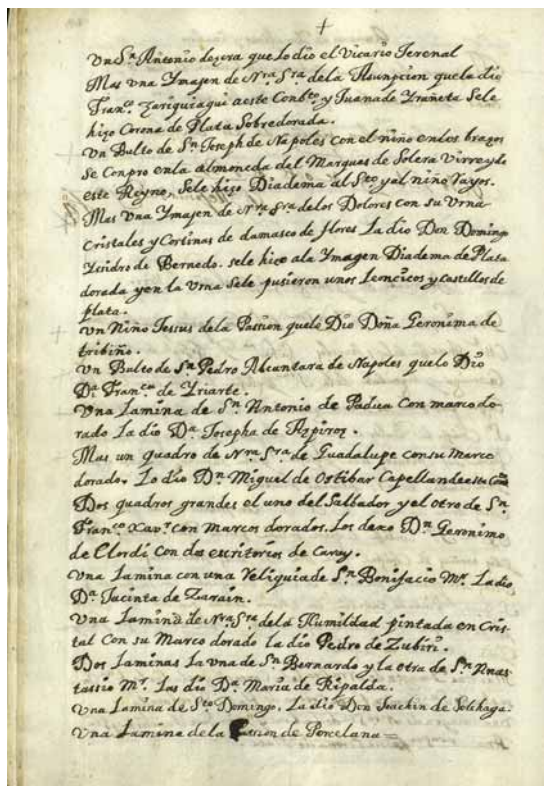 +
Vn Sn. Antonio de cera que lo dio el Vicario Terenal
Mas vna Ymajen de Nra. Sra. de la Asunpcion que la dio
Franco. Zariquiagui a este Conbto. y Juana de Yrañeta Sele
hiço Corona de Plata Sobredorada.
Vn Bulto de Sn. Joseph de Napoles con el niño en los brazos
se Conpro en la almoneda del Marques de Solera Virrey de
este Reyno. Sele hiço Diadema al Sto. y al niño Rayos.
Mas Vna Ymajen de Nra. Sra. de los Dolores con su Vrna
cristales y Cortinas de damasco de flores La dio Don Domingo
Ysidro de Bernedo. sele hiço ala Ymagen Diadema de Plata
dorada y en la Vrna Sele pusieron unos Leoncicos y Castillos de
plata.
Vn Niño Jessus dela Passion que lo Dio Doña Geronima de
tribiño.
Vn Bulto de Sn. Pedro Alcantara de Napoles que lo Dio
Da. Franca. de Yriarte.
Vna Lamina de Sn. Antonio de Padua Con marco do-
rado La dio Da. Josepha de Azpiroz.
Mas un quadro de Nra. Sra. de Guadalupe con su Marco
dorado. Lo dio Dn. Miguel de Ostibar Capellan de este
Dos quadros grandes el uno del Salbador y el otro de Sn.
Franco. Xavr. con Marcos dorados. Los dexo Dn. Geronimo
de Elordi con dos escritorios de Carey.
Vna Lamina con una Reliquia de Sn. Bonifacio Mr. La dio
Da. Jacinta de Zarain.
Vna Lamina de Nra. Sra. dela Humildad pintada en Cris-
tal Con su Marco dorado la dio Pedro de Zubiri.
Dos Laminas La vna de Sn. Bernardo y la otra de Sn. Anas-
tassio Mr. Las dio Da. Maria de Ripalda.
Vna Lamina de Sto. Domingo. La dio Don Joachin de Solchaga.
Vna Lamina de la Passion de Porcelana=